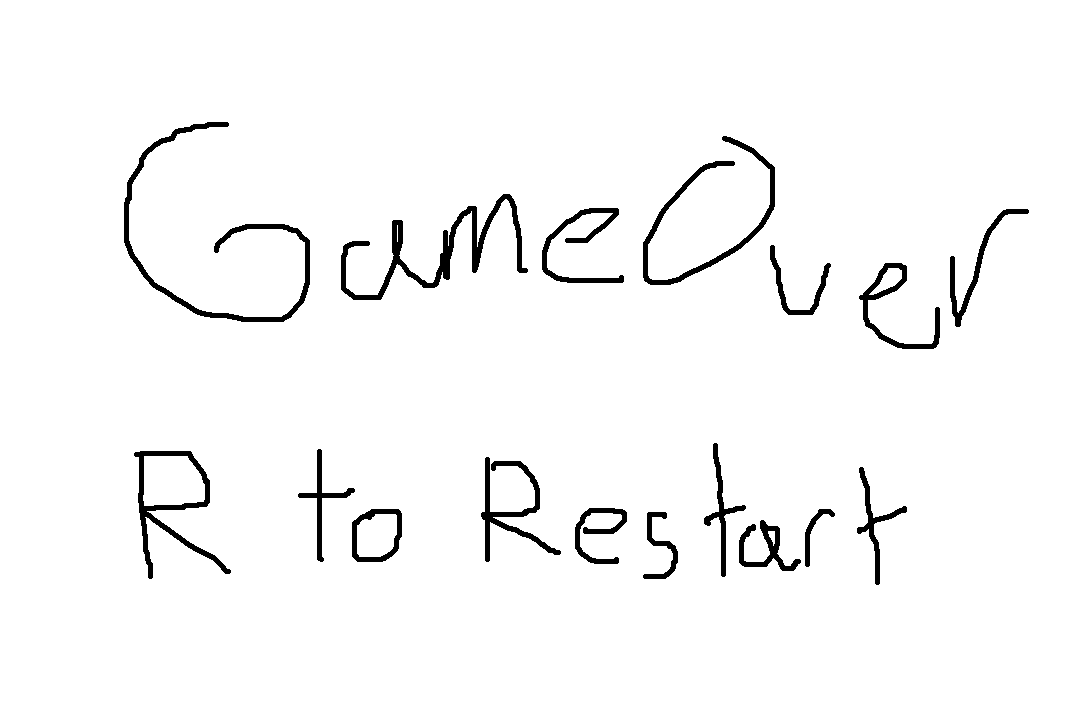 GameOver
R to Restart